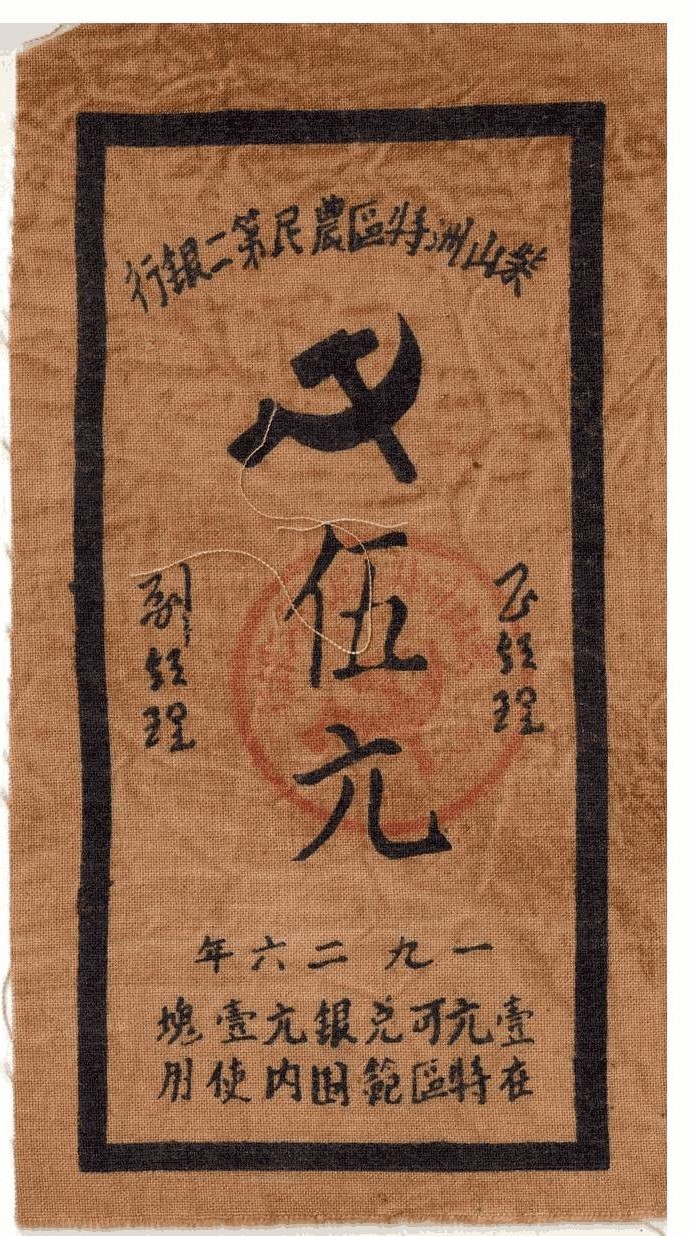 柴山洲特區農民第二銀行
伍元
正經理
副經理
一九二六年
壹元可兑銀元壹塊
在特區範囲内使用